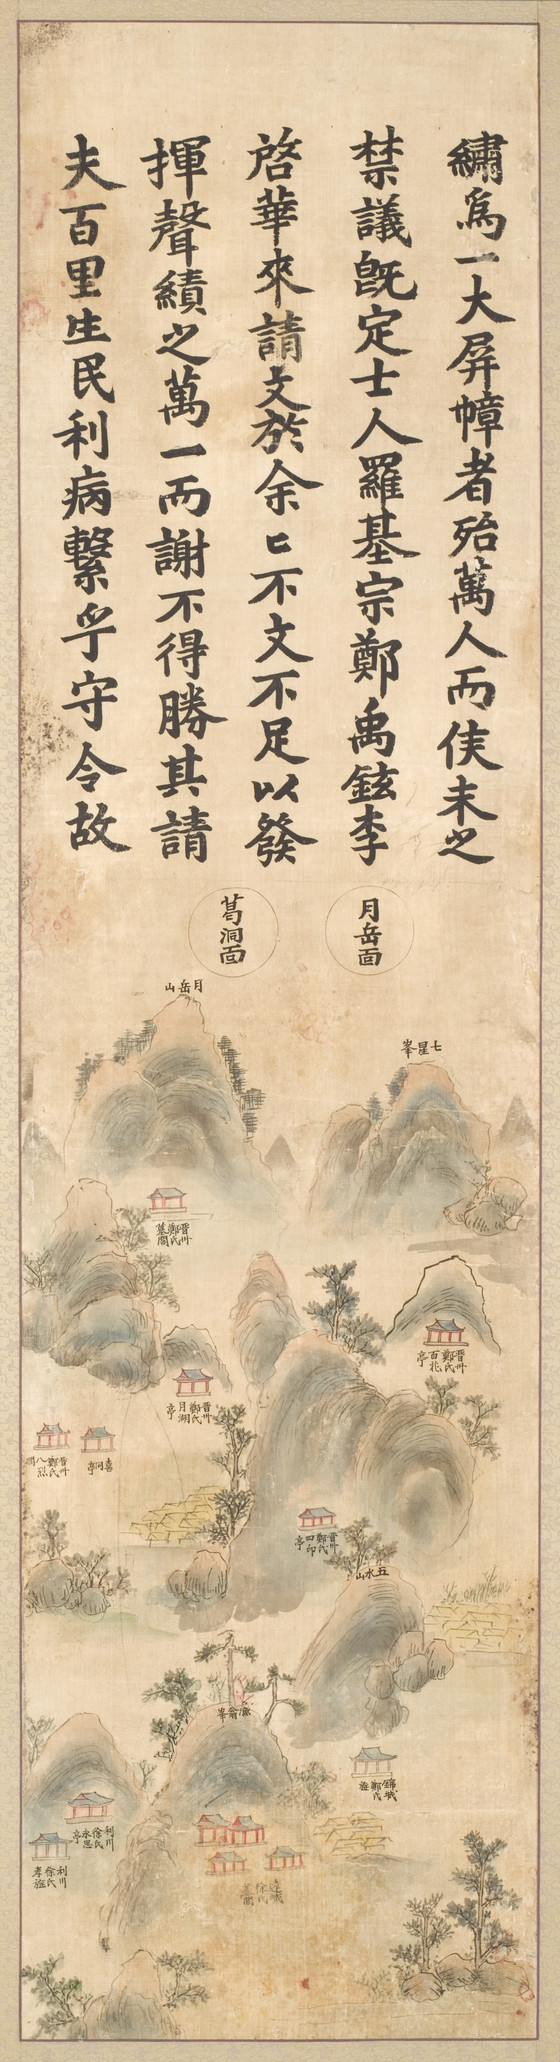 繡爲一大屛幛者殆萬人而侯未之
禁議旣定士人羅基宗鄭禹鉉李
啓華來請文於余已不文不足以發
揮聲績之萬一而謝不得勝其請
夫百里生民利病繫乎守令故
月岳面
葛洞面
月岳山
七星峯
晋州鄭氏墓閣
晋州鄭氏百兆亭
晋州鄭氏月湖亭
喜洞亭
晋州鄭氏八烈閣
晋州鄭氏四印亭
五水山
漁翁峯
錦城鄭氏旌
利川徐氏永思亭
利川徐氏孝旌
達城徐氏墓閣